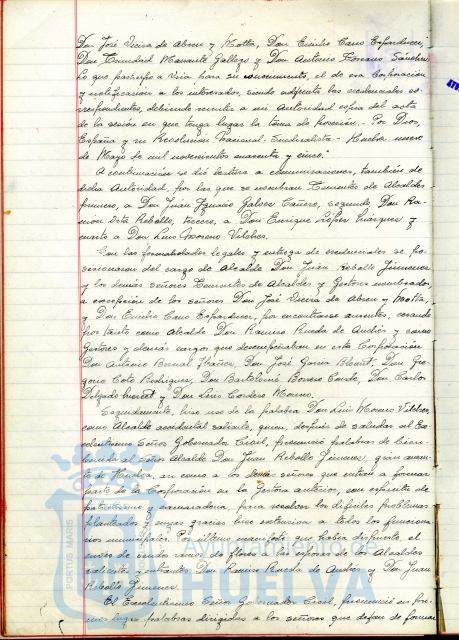 Don José Vieira de Abreu y Motta, Don Emilio Cano Espanducci,
Don Trinidad Navarrete Gallego y Don Antonio Toscano Sánchez.
Lo que participo a V.S. para su conocimiento, el de esa Corporación
y notificación a los interesados, siendo adjuntas las credenciales co-
rrespondientes, debiendo remitir a mi Autoridad copia del acta
de la sesión en que tenga lugar la toma de posesión.- Por Dios,
España y su Revolución Nacional-Sindicalista.- Huelva nueve
de Mayo de mil novecientos cuarenta y cinco."
A continuación se dió lectura a comunicaciones, también de
dicha Autoridad, por las que se nombran Tenientes de Alcaldes
primero, a Don Juan Ignacio Gálvez Cañero, segundo, Don Ra-
món Rebollo, tercero, a Don Enrique López Márquez y
cuarto a Don Luis Moreno Vélchez.
Con las formalidades legales y entrega de credenciales se po-
sesionaron del cargo de Alcalde Don Juan Rebollo Jimenez
y los demás señores Tenientes de Alcaldes y Gestores nombrados,
a excepción de los señores Don José Vieira de Abreu y Motta,
y Don Emilio Cano Espanducci, por encontrarse ausentes, cesando
por tanto como Alcalde Don Ramiro Rueda de Andrés y como
Gestores y demás cargos que desempeñaban en esta Corporación
Don Antonio Bernal Ibáñez, Don José García Don Gre-
gorio Soto Rodríguez, Don Bartolomé Borrero Conde, Don Carlos
Delgado y Don Luis Cordero Moreno.
Seguidamente, hizo uso de la palabra Don Luis Moreno Vélchez,
como Alcalde accidental saliente, quien, después de saludar al Ex-
celentísimo Señor Gobernador Civil, pronunció palabras de bien-
venida al Señor Alcalde Don Juan Rebollo Jimenez, gran aman-
te de Huelva, así como a los demás señores que entran a formar
parte de la Corporación en la Gestora anterior, con espíritu de
patriotismo y camaradería, para resolver los difíciles problemas
planteados y cuyas gracias hizo extensivas a todos los funciona-
rios municipales. Por último manifestó que había dispuesto el
envío de sendos ramos de flores a las esposas de los Alcaldes
salientes y entrantes Don Ramiro Rueda de Andrés y Don Juan
Rebollo Jimenez.
El Excelentísimo Señor Gobernador Civil, pronunció en pri-
mer lugar palabras dirigidas a los señores que dejan de formar
PORTUS MARIS
Ayuntamiento de
HUELVA